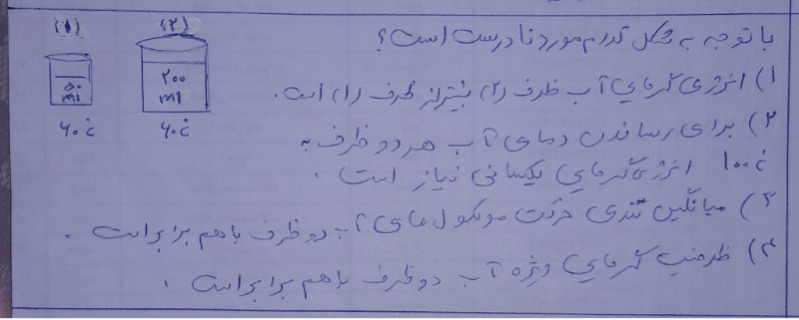 (۱) (۲)
۵۰
ml
۲۰۰
ml
۶۰°c
۶۰°c
با توجه به شکل کدام مورد نادرست است؟
۱) انرژی گرمایی آب ظرف (۲) بیشتر از ظرف (۱) است.
۲) برای رساندن دمای آب هر دو ظرف به
۱۰۰°c انرژی گرمایی یکسانی نیاز است.
۳) میانگین تندی حرکت مولکول های آب دو ظرف با هم برابر است.
۴) ظرفیت گرمایی ویژه آب دو ظرف با هم برابر است.